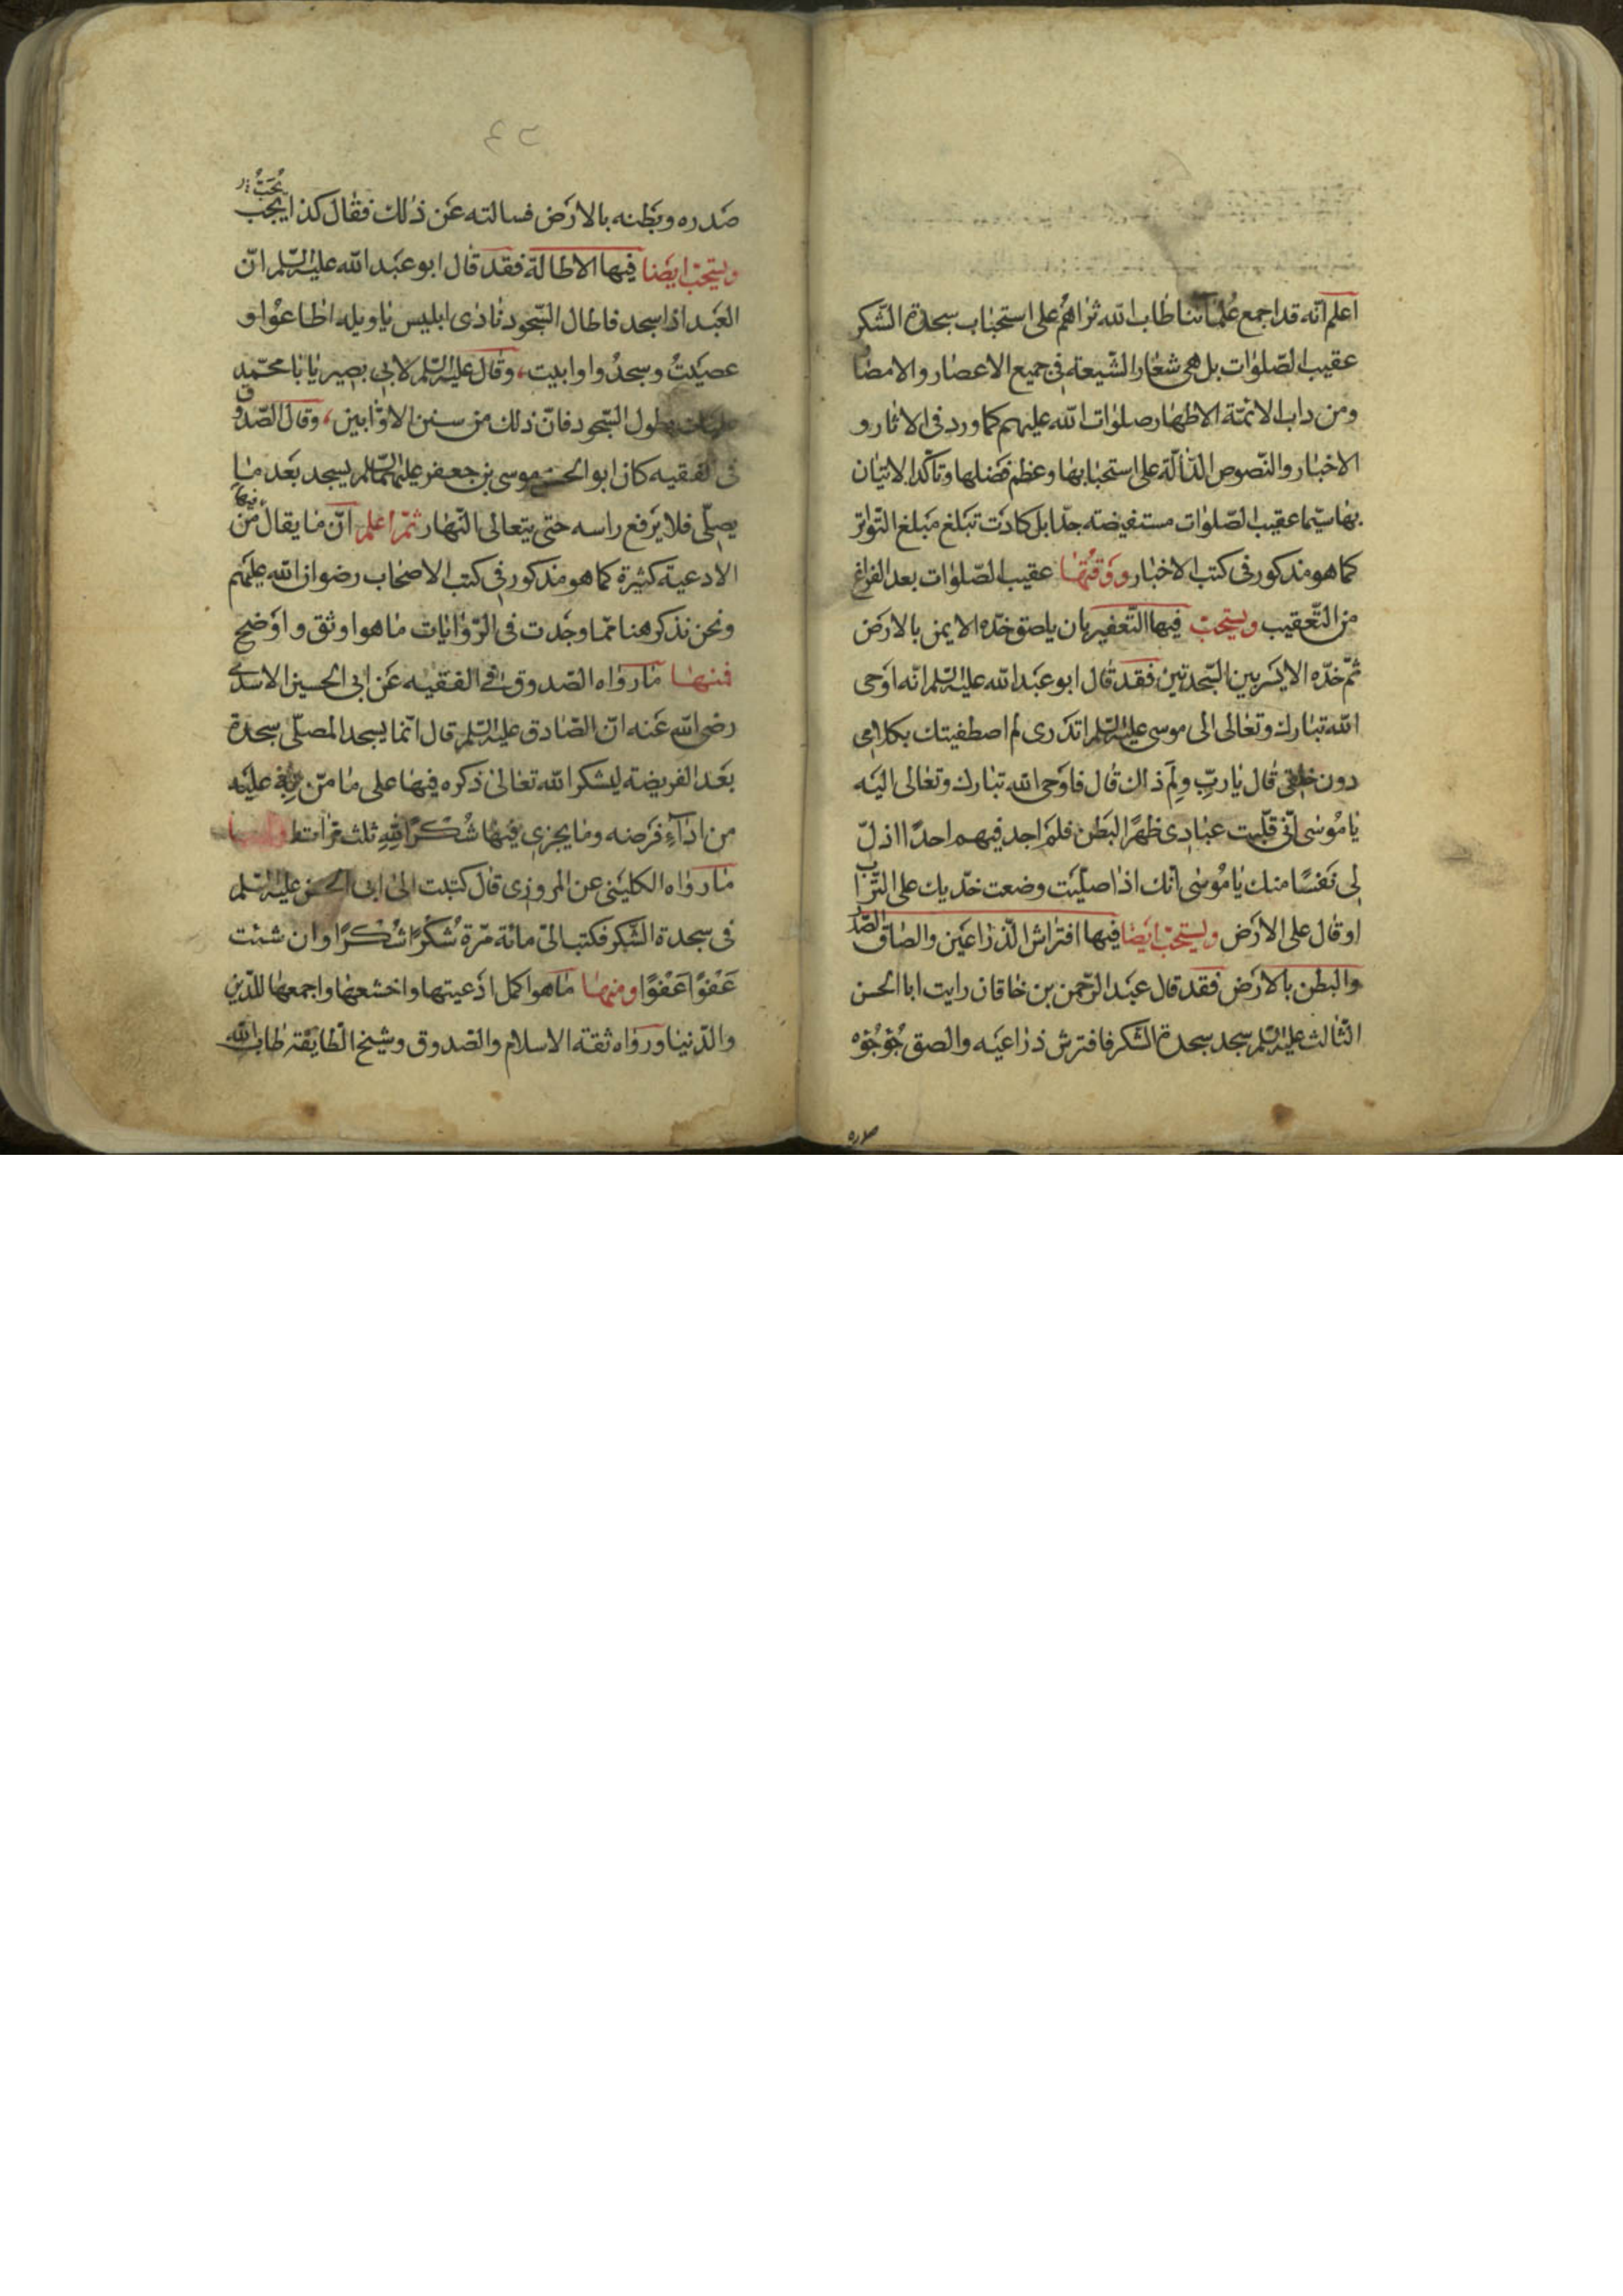 اعلم انّه قد اجمع علمائنا طاب الله ثراهم على استحباب سجدة الشّكر
عقيب الصّلوات بل هى شعار الشّيعة فى جميع الاعصار والامصا
ومن داب الائمّة الاطهار صلوات الله عليهم كما ورد فى الاثار و
الاخبار والنّصوص الدّالّة على استحبابها وعظم فضلها وتاكّد الاتيان
بها سيّما عقيب الصّلوات مستفيضة جدّا بل كادت تبلغ مبلغ التّواتر
كما هو مذكور فى كتب الاخبار ووقتها عقيب الصّلوات بعد الفراغ
من التّعقيب ويستحبّ فيها التّعفير بان يلصق خدّه الايمن بالارض
ثمّ خدّه الايسر بين السّجدتين فقد قال ابو عبد الله عليه السّلم انّه اوحى
الله تبارك وتعالى الى موسى عليه السّلم اتدرى لم اصطفيتك بكلامى
دون خلقى قال يا ربّ ولِمَ ذاك قال فاوحى الله تبارك وتعالى اليه
يا مُوسٰى انّى قلّبت عبادى ظهرًا لبطن فلم اجد فيهم احدًا اذلّ
لى نفسًا منك يا مُوسٰى انّك اذا صلّيت وضعت خدّيك على التّراب
او قال على الارض ويستحبّ ايضا فيها افتراش الذّراعين والصاق الصّدر
والبطن بالارض فقد قال عبد الرّحمن بن خاقان رايت ابا الحسن
الثّالث عليه السّلم سجد سجدة الشكر فافترش ذراعيه والصق جُؤجُؤه
صدره
٤٢
يُحَبُّ
صدره وبطنه بالارض فسالته عن ذلك فقال كذا يجب
ويستحبّ ايضا فيها الاطالة فقد قال ابو عبد الله عليه السّلم انّ
العبد اذا سجد فاطال السّجود نادى ابليس يا ويله اطاعوا و
عصيتُ وسجدُوا وابيت، وقال عليه السّلم لابى بصير يا با محمّد
عليك بطول السّجود فانّ ذلك من سنن الاوّابين، وقال الصّدوق
فى الفقيه كان ابو الحسن موسى بن جعفر عليهما السّلم يسجد بعد ما
يصلّى فلا يرفع راسه حتّى يتعالى النّهار ثمّ اعلم انّ ما يقال فيها من
الادعية كثيرة كما هو مذكور فى كتب الاصحاب رضوان الله عليهم
ونحن نذكر هنا ممّا وجدت فى الرّوايات ما هو اوثق واوضح
فمنها ما رواه الصّدوق فى الفقيه عن ابى الحسين الاسدى
رضى الله عنه انّ الصّادق عليه السّلم قال انّما يسجد المصلّى سجدة
بعد الفريضة ليشكر الله تعالى ذكره فيها على ما منّ به عليه
من اداء فرضه وما يجزى فيها شُكْرًا لِلّٰهِ ثلث مرّات ومنها
ما رواه الكلينى عن المروزى قال كتبت الى ابى الحسن عليه السّلم
فى سجدة الشكر فكتب الىّ مائة مرّة شُكْرًا شُكْرًا وان شئت
عَفْوًا عَفْوًا ومنها ما هو اكمل ادعيتها واخشعها واجمعها للدّين
والدّنيا ورواه ثقة الاسلام والصّدوق وشيخ الطّايفة طاب الله